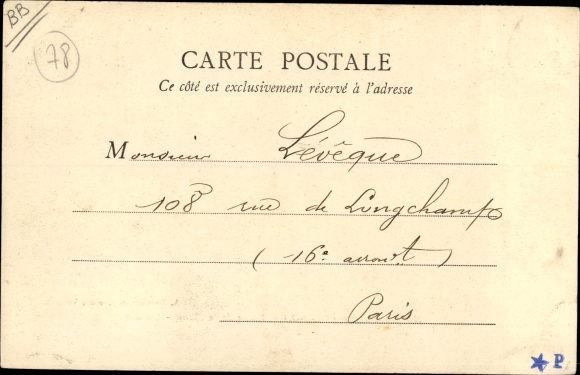 BB
78
CARTE POSTALE
Ce côté est exclusivement réservé à l'adresse
Monsieur Lévêque
108 rue de Longchamp
(16e arrondt)
Paris
★ P